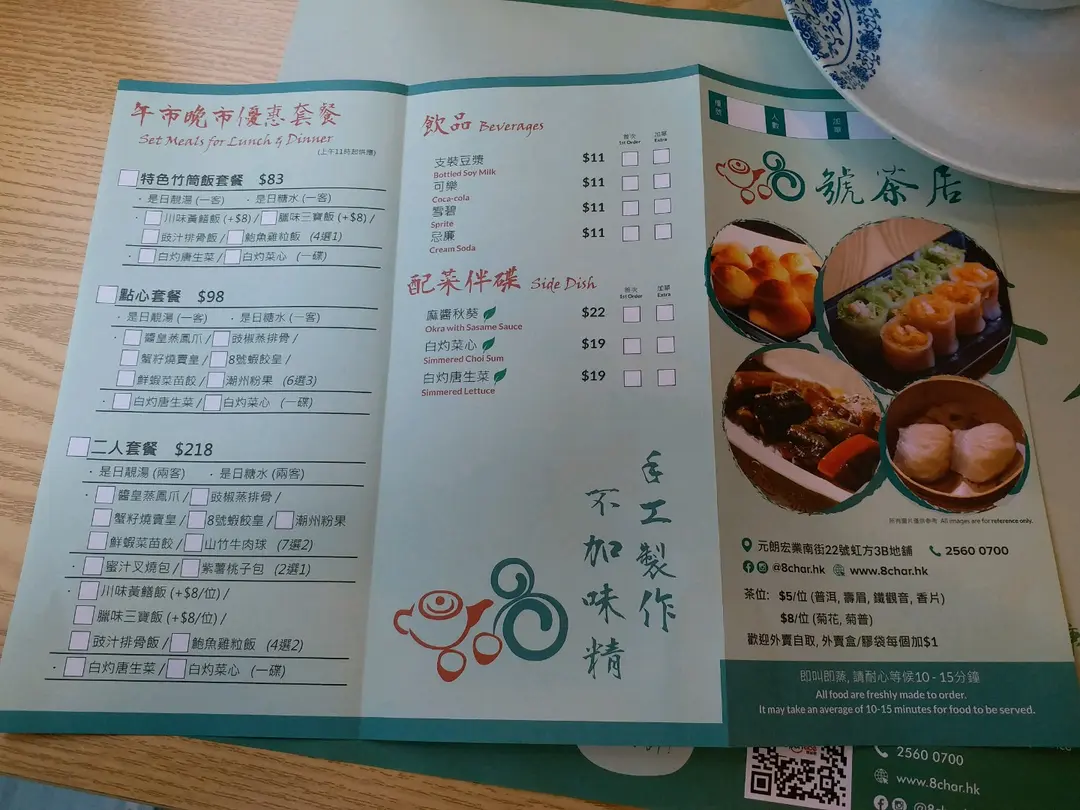 午市晚市優惠套餐
Set Meals for Lunch & Dinner
(上午11時起供應)
特色竹筒飯套餐 $83
· 是日靚湯 (一客) · 是日糖水 (一客)
· 川味黃鱔飯 (+$8) / 臘味三寶飯 (+$8) /
豉汁排骨飯 / 鮑魚雞粒飯 (4選1)
· 白灼唐生菜 / 白灼菜心 (一碟)
點心套餐 $98
· 是日靚湯 (一客) · 是日糖水 (一客)
· 醬皇蒸鳳爪 / 豉椒蒸排骨 /
蟹籽燒賣皇 / 8號蝦餃皇 /
鮮蝦菜苗餃 / 潮州粉果 (6選3)
· 白灼唐生菜 / 白灼菜心 (一碟)
二人套餐 $218
· 是日靚湯 (兩客) · 是日糖水 (兩客)
· 醬皇蒸鳳爪 / 豉椒蒸排骨 /
蟹籽燒賣皇 / 8號蝦餃皇 / 潮州粉果
鮮蝦菜苗餃 / 山竹牛肉球 (7選2)
· 蜜汁叉燒包 / 紫薯桃子包 (2選1)
· 川味黃鱔飯 (+$8/位) /
臘味三寶飯 (+$8/位) /
豉汁排骨飯 / 鮑魚雞粒飯 (4選2)
· 白灼唐生菜 / 白灼菜心 (一碟)
飲品 Beverages
首次 加單
1st Order Extra
支裝豆漿 $11
Bottled Soy Milk
可樂 $11
Coca-cola
雪碧 $11
Sprite
忌廉 $11
Cream Soda
配菜伴碟 Side Dish
加單
1st Order Extra
麻醬秋葵 $22
Okra with Sasame Sauce
白灼菜心 $19
Simmered Choi Sum
白灼唐生菜 $19
Simmered Lettuce
手工製作
不加味精
人數 加單
號茶居
所有圖片僅供參考 All images are for reference only.
元朗宏業南街22號虹方3B地舖 2560 0700
@8char.hk www.8char.hk
茶位: $5/位 (普洱, 壽眉, 鐵觀音, 香片)
$8/位 (菊花, 菊普)
歡迎外賣自取, 外賣盒/膠袋每個加$1
即叫即蒸, 請耐心等候10 - 15分鐘
All food are freshly made to order.
It may take an average of 10-15 minutes for food to be served.
2560 0700
www.8char.hk